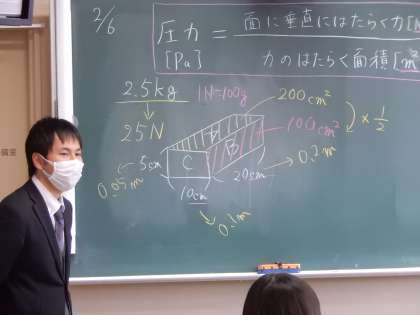 2/6
圧力 = 面に垂直にはたらく力[N]
[Pa] 力のはたらく面積[m²]
2.5kg 1N=100g
25N
200cm²
100cm²
×1/2
A
B
C
5cm
0.05m
10cm
0.1m
20cm
0.2m
備室